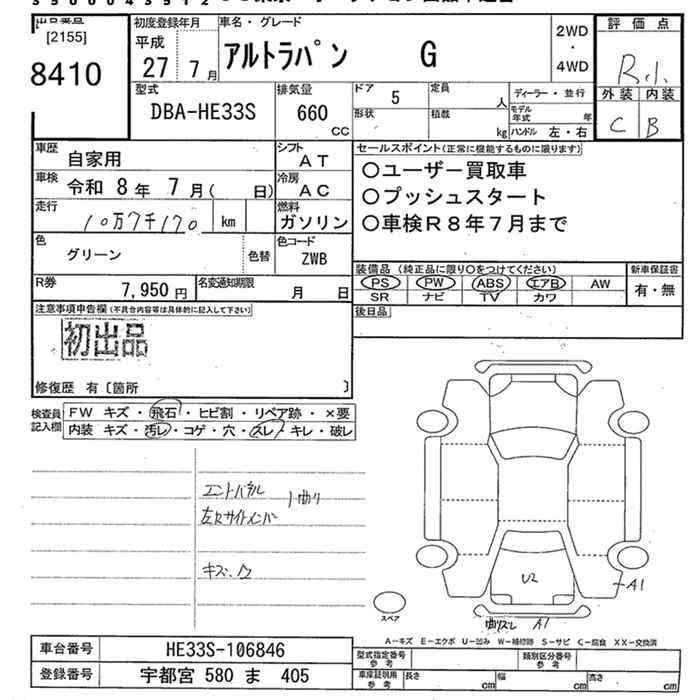 [2155]
8410
初度登録年月
平成
27 7 月
車名・グレード
アルトラパン G
2WD
・
4WD
評価点
R.1.
外装 内装
C B
型式
DBA-HE33S
排気量
660
CC
ドア
5
形状
定員
人
積載
kg
ディーラー・並行
モデル年式 年
ハンドル 左・右
車歴
自家用
シフト
AT
車検
令和 8 年 7 月( 日)
冷房
AC
走行
10万7千170 km
燃料
ガソリン
色
グリーン
色替
色コード
ZWB
R券
7,950 円
名変通知期限
月 日
セールスポイント(正常に機能するものに限ります)
○ユーザー買取車
○プッシュスタート
○車検R8年7月まで
装備品 (純正品に限り○をつけてください)
新車保証書
PS PW ABS エアB AW
SR ナビ TV カワ
有・無
後日品
注意事項申告欄(不具合内容等は具体的に記入して下さい)
初出品
修復歴 有〔箇所 〕
検査員
記入欄
FW キズ・飛石・ヒビ割・リペア跡・×要
内装 キズ・汚レ・コゲ・穴・スレ・キレ・破レ
エンドパネル
左リヤサイドメンバー
曲り
キズ、凹
U2
A1
曲りスレ A1
スペア
A-キズ E-エクボ U-凹み W-補修跡 S-サビ C-腐食 XX-交換済
車台番号
HE33S-106846
登録番号
宇都宮 580 ま 405
型式指定番号
参考
類別区分番号
参考
車庫証明用
参考
長さ cm
幅 cm
高さ cm